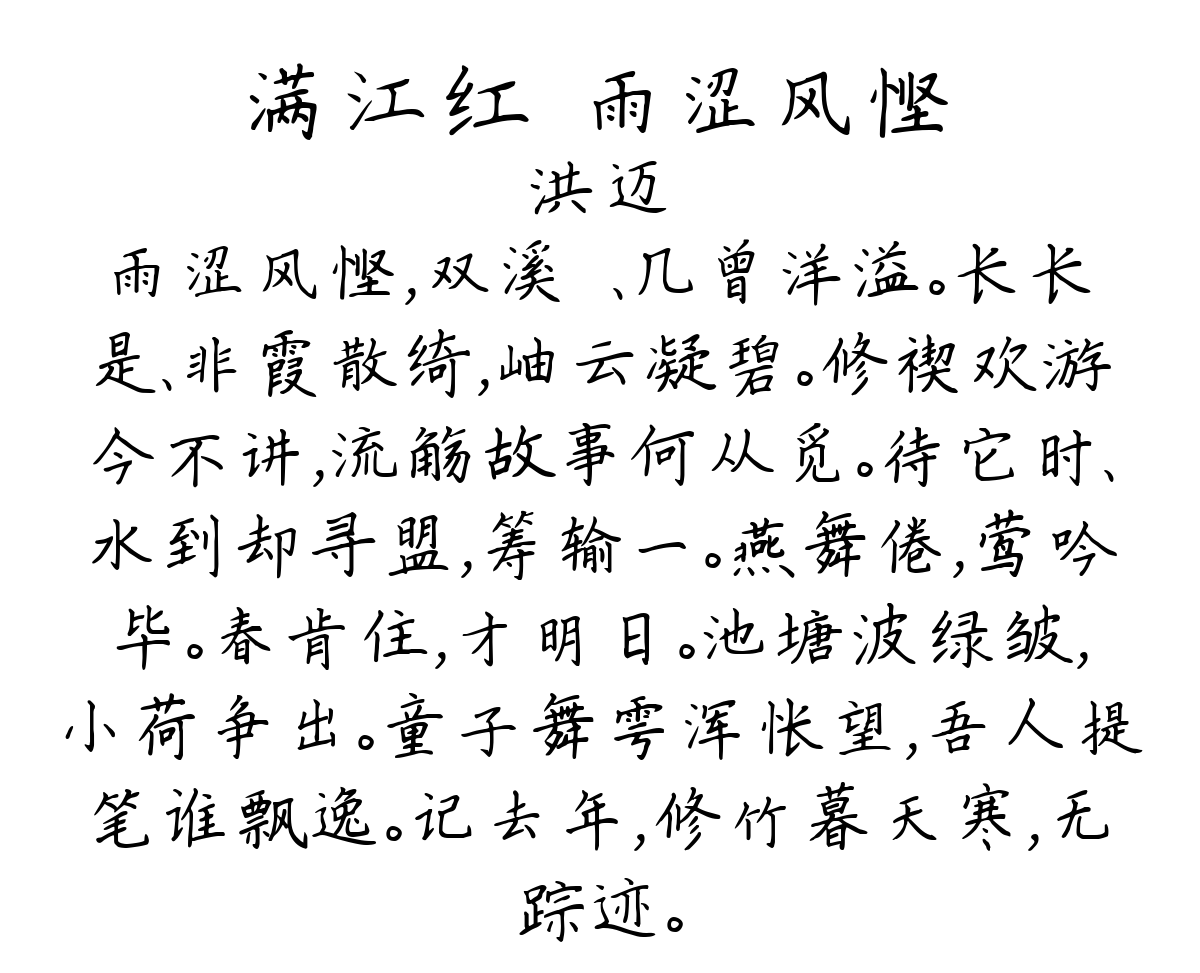 满江红 雨涩风悭
洪迈
雨涩风悭,双溪 、几曾洋溢。长长
是、非霞散绮,岫云凝碧。修禊欢游
今不讲,流觞故事何从觅。待它时、
水到却寻盟,筹输一。燕舞倦,莺吟
毕。春肯住,才明日。池塘波绿皱,
小荷争出。童子舞雩浑怅望,吾人提
笔谁飘逸。记去年,修竹暮天寒,无
踪迹。